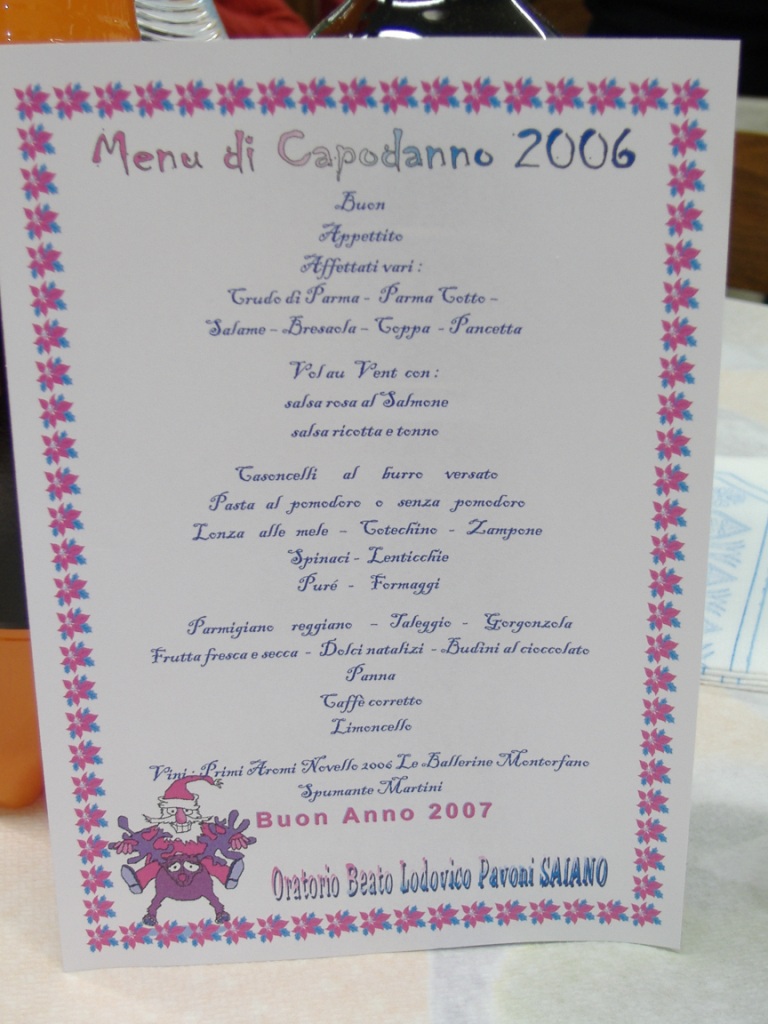 Menu di Capodanno 2006
Buon
Appettito
Affettati vari :
Crudo di Parma - Parma Cotto -
Salame - Bresaola - Coppa - Pancetta
Vol au Vent con :
salsa rosa al Salmone
salsa ricotta e tonno
Casoncelli al burro versato
Pasta al pomodoro o senza pomodoro
Lonza alle mele - Cotechino - Zampone
Spinaci - Lenticchie
Puré - Formaggi
Parmigiano reggiano - Taleggio - Gorgonzola
Frutta fresca e secca - Dolci natalizi - Budini al cioccolato
Panna
Caffè corretto
Limoncello
Vini : Primi Aromi Novello 2006 Le Ballerine Montorfano
Spumante Martini
Buon Anno 2007
Oratorio Beato Lodovico Pavoni SAIANO